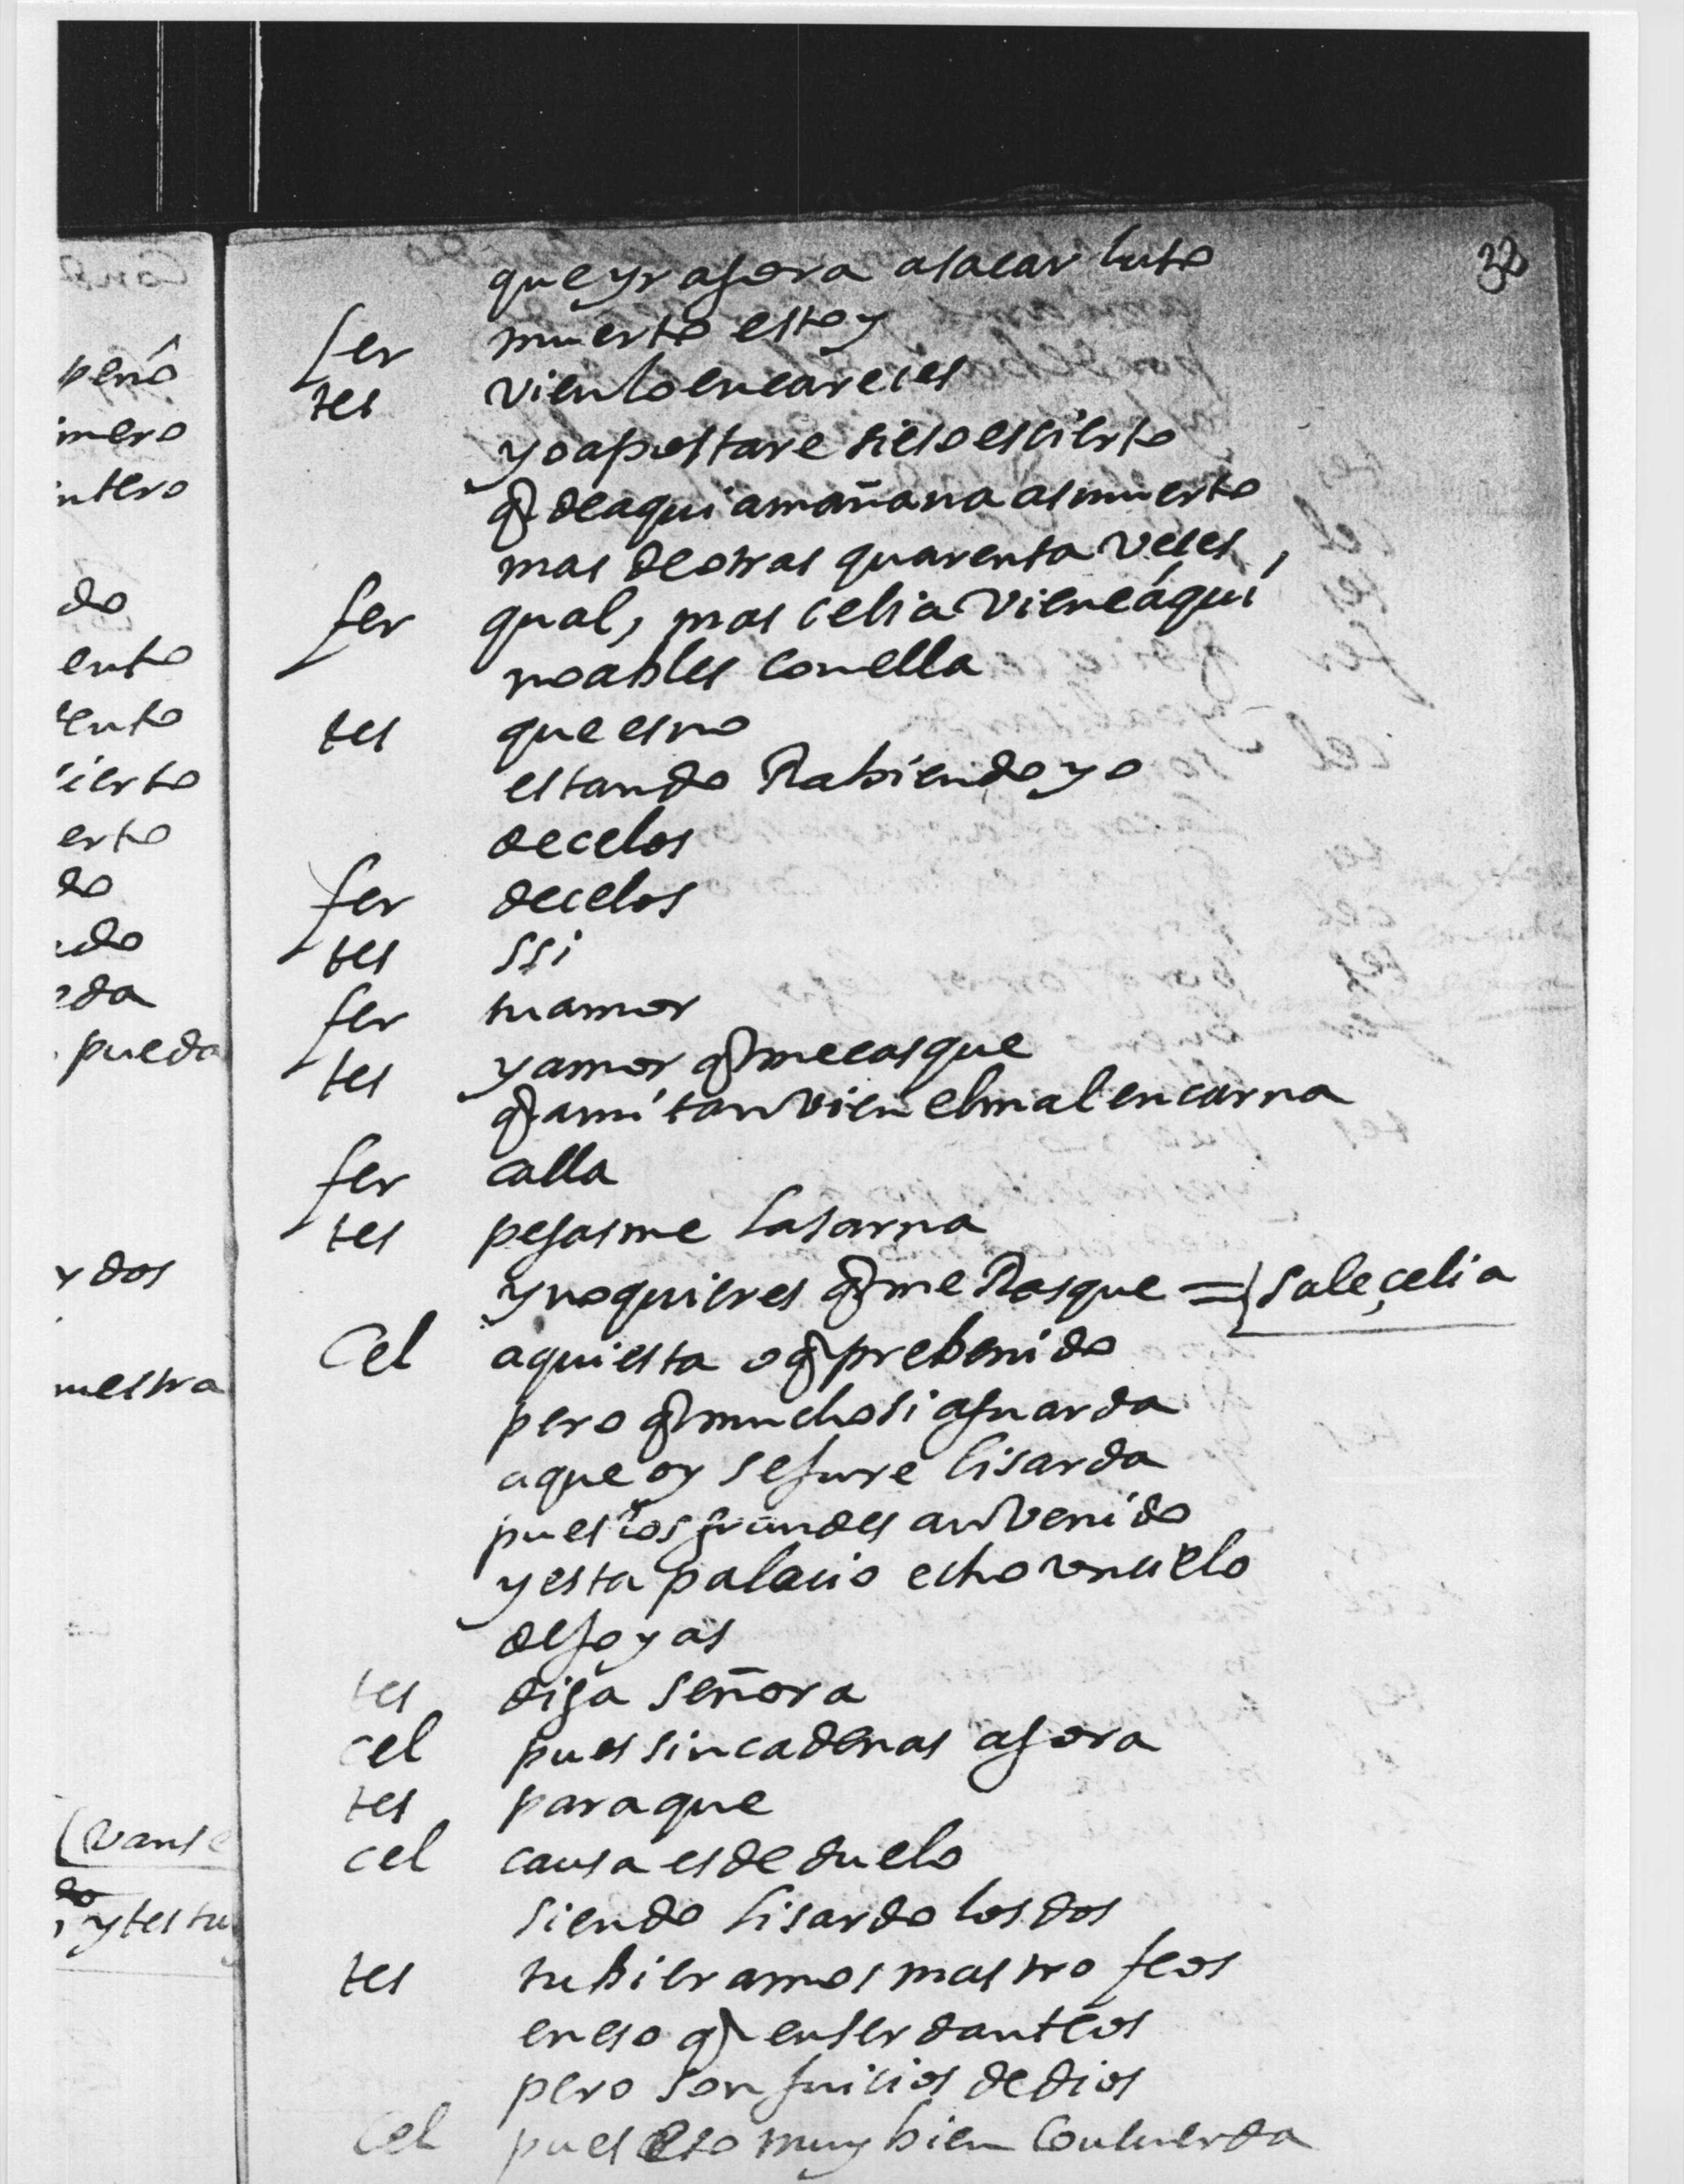 38
que yr agora a sacar luto
fer muerto estoy
tes vien lo encareces
yo apostare si eso es cierto
q̃ de aqui a mañana as muerto
mas de otras quarenta veces,
fer qual, mas celia viene áqui
no ables con ella
tes que es no
estando Rabiendo yo
de celos
fer de celos
tes ssi
fer tu amor
tes y amor q̃ me casque
q̃ a mí tan vien el mal encarna
fer calla
tes pegasme la sarna
y no quieres q̃ me Rasque = sale çelia
Cel aqui esta o q̃ prebenido
pero q̃ mucho si aguarda
a que oy se jure lisarda
pues los grandes an venido
y esta palacio echo vn cielo
de joyas
tes diga señora
cel pues sin cadenas agora
tes para que
cel causa es de duelo
siendo lisardo los dos
tes tubieramos mas trofeos
en eso q̃ en ser
pero son juicios de dios
Cel pues eso muy bien
pení
imero
intero
do
ento
iento
cierto
erto
do
ndo
eda
pueda
y dos
muestra
(vanse
y testu